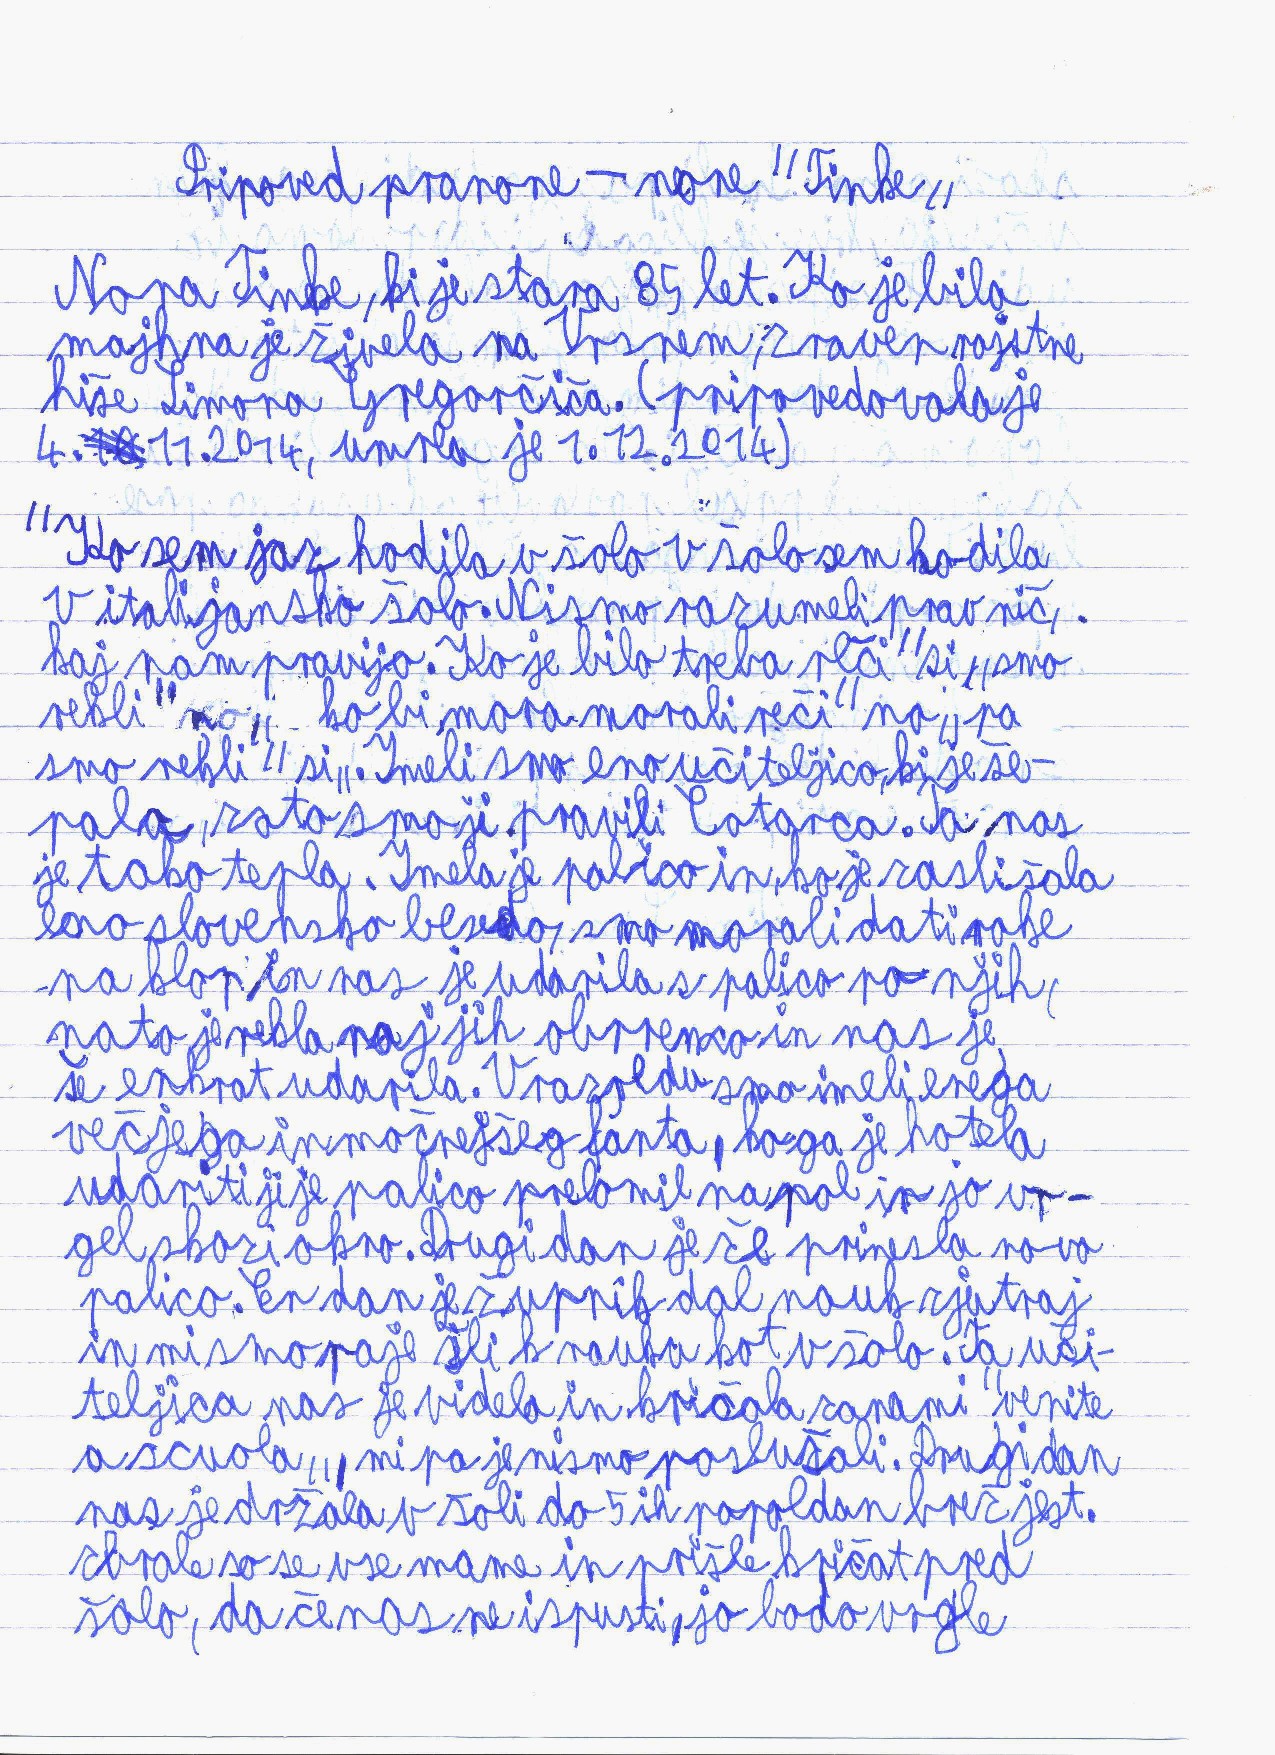 Pripoved pranone - none "Tinke„
Nona Tinke, ki je stara 85 let. Ko je bila
majhna je živela na Vrsnem, zraven rojstne
hiše Simona Gregorčiča. (pripovedovala je
4. 11. 2014, umrla je 1. 12. 2014)
"Ko sem jaz hodila v šolo v šolo sem hodila
v italijansko šolo. Nismo razumeli prav nič,.
kaj nam pravijo. Ko je bilo treba reči "si„ smo
rekli "no„ ko bi mora morali reči "no„ pa
smo rekli "si„. Imeli smo eno učiteljico, ki je še-
pala, zato smo ji pravili Čotarca. Ta nas
je tako tepla. Imela je palico in, ko je zaslišala
eno slovensko besedo, smo morali dati roke
na klop in nas je udarila s palico po njih,
nato je rekla naj jih obrnemo in nas je
še enkrat udarila. V razredu smo imeli enega
večjega in močnejšeg fanta, ko ga je hotela
udariti ji je palico prelomil na pol in jo vr-
gel skozi okno. Drugi dan je že prinesla novo
palico. En dan je župnik dal nauk zjutraj
in mi smo raje šli k nauku kot v šolo. Ta uči-
teljica nas je videla in kričala za nami "venite
a scuola„, mi pa je nismo poslušali. Drugi dan
nas je držala v šoli do 5ih popoldan brez jest.
zbrale so se vse mame in prišle kričat pred
šolo, da če nas ne ispusti, jo bodo vrgle